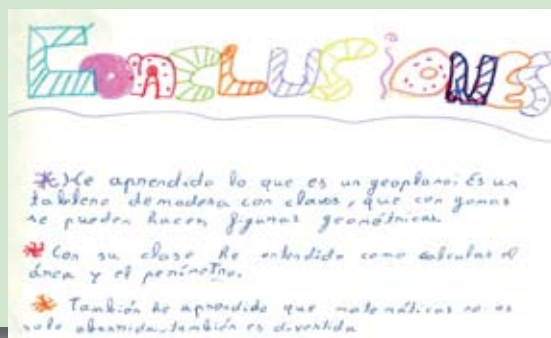 CONCLUSIONES
He aprendido lo que es un geoplano: Es un
tablero de madera con clavos, que con gomas
se pueden hacer figuras geométricas.
Con su clase he entendido como calcular el
área y el perímetro.
También he aprendido que matemáticas no es
solo aburrida, también es divertida